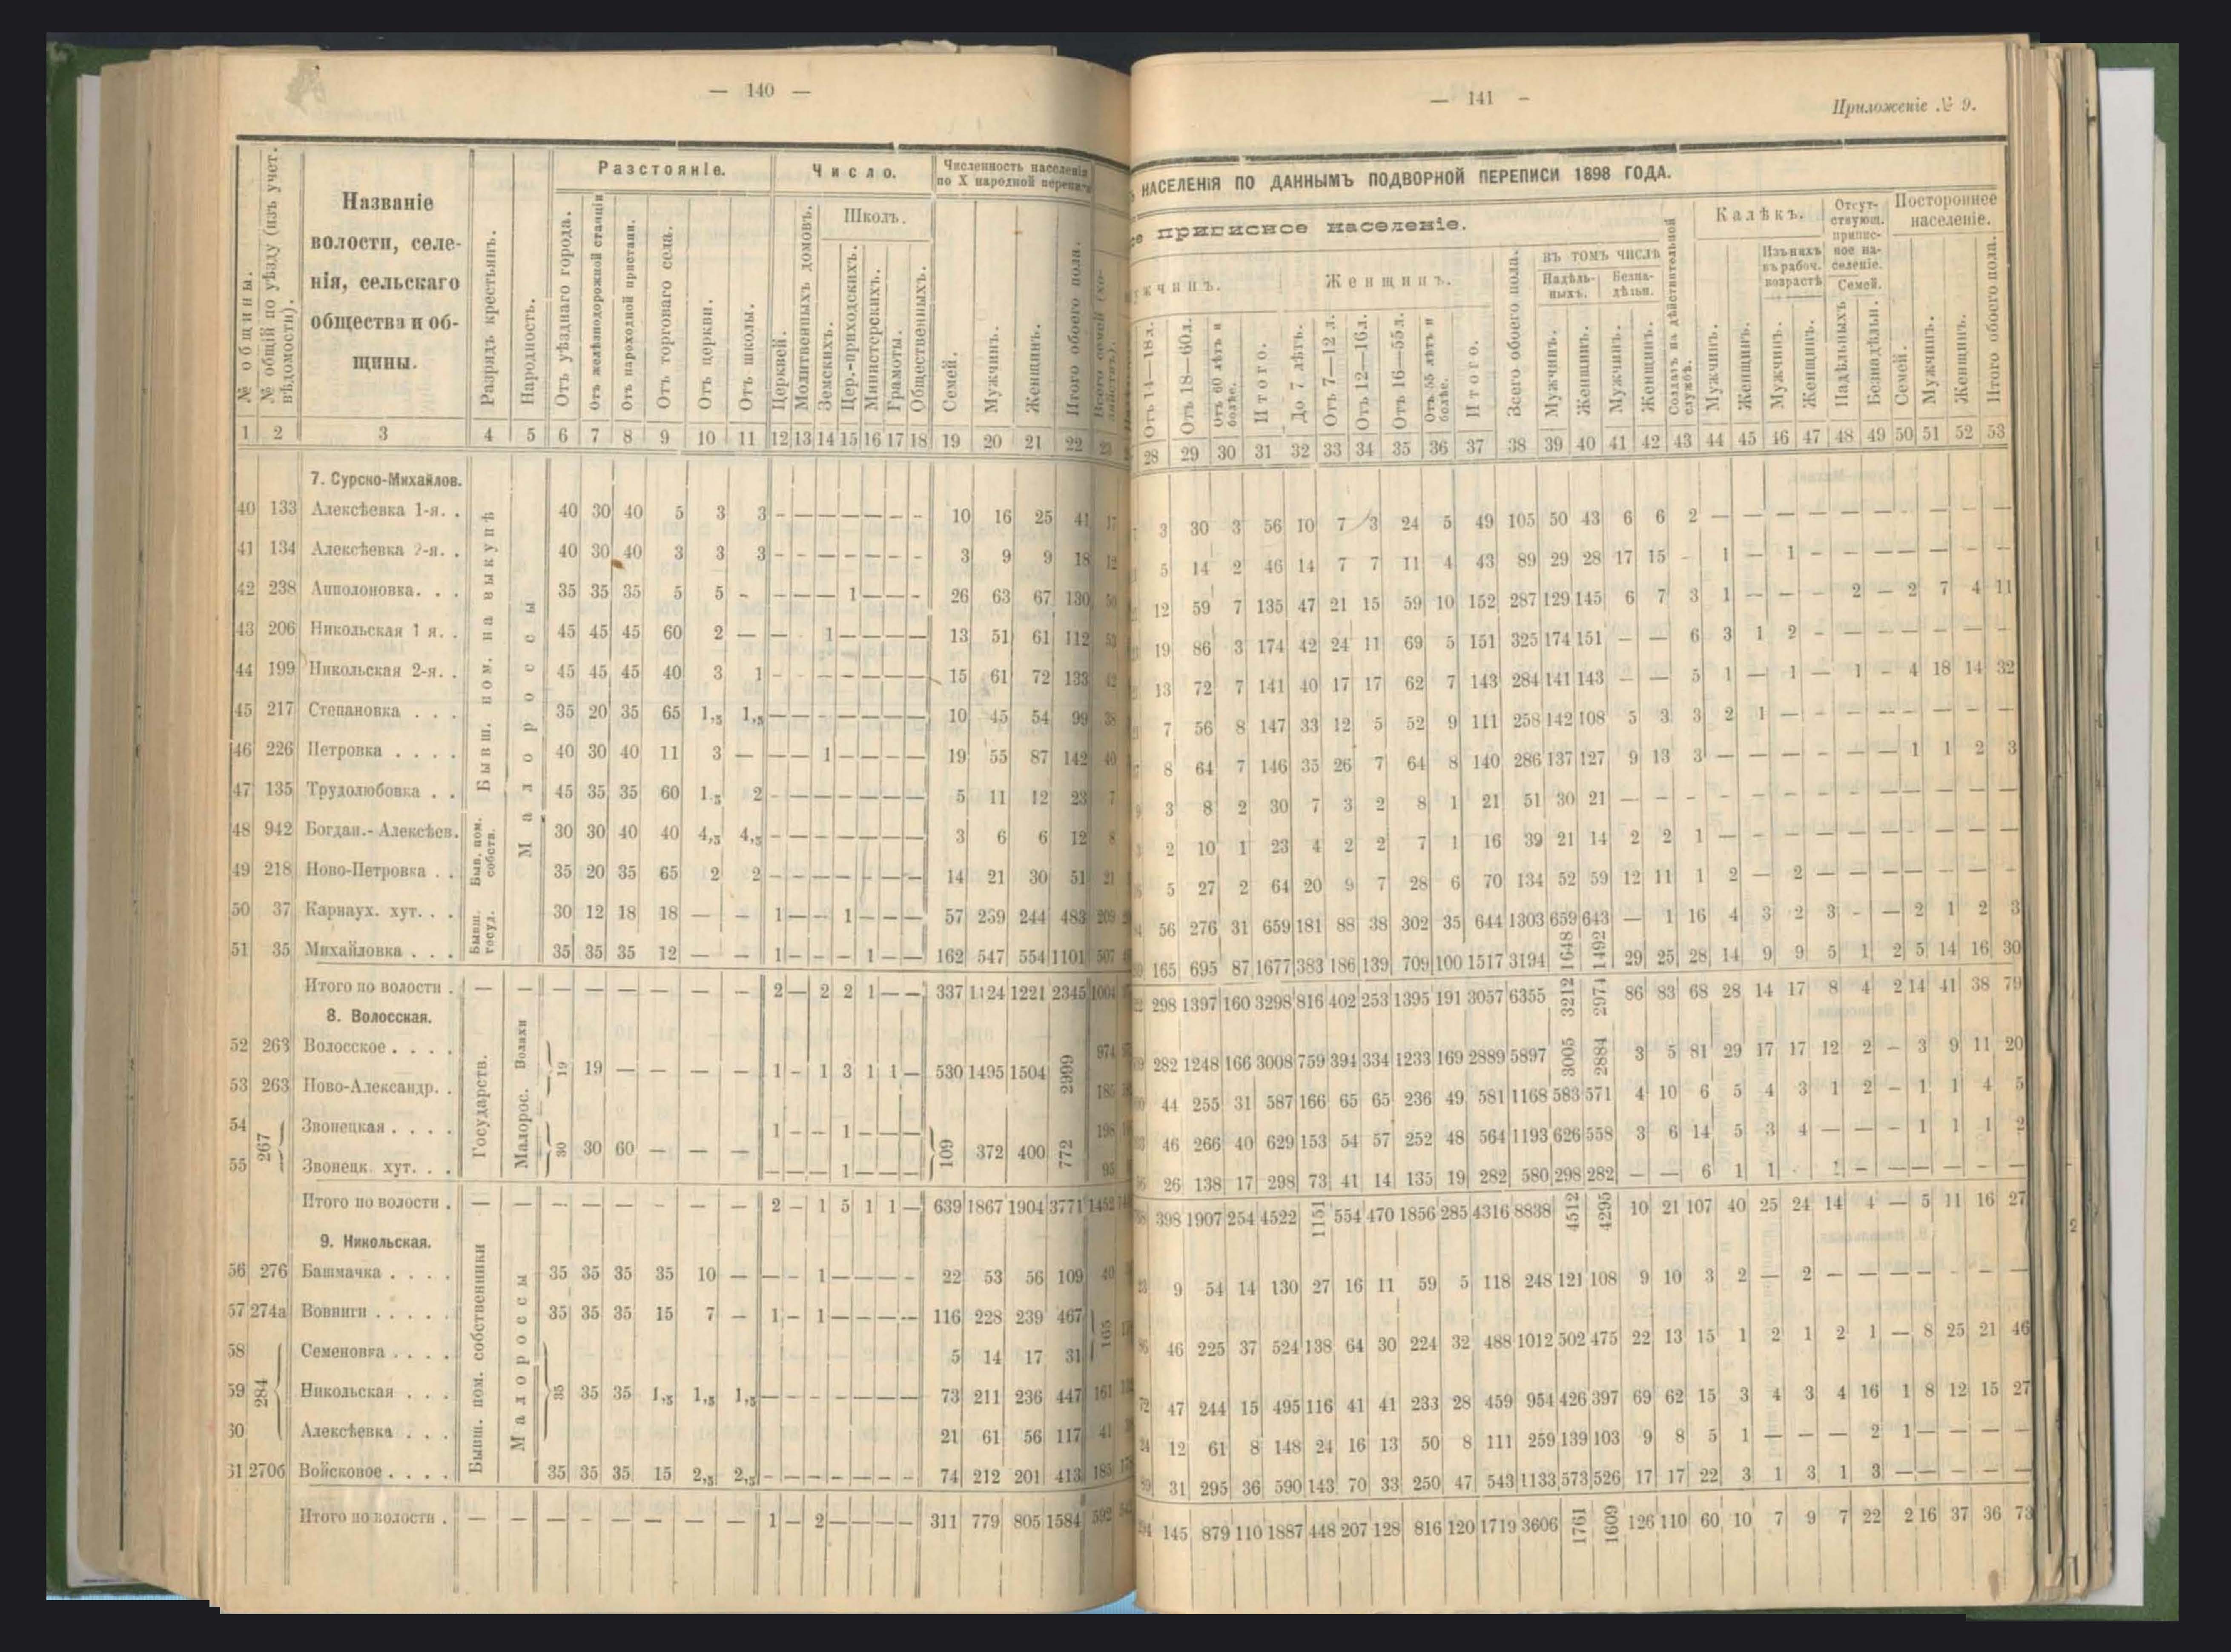 — 140 —
№ общины.
№ общій по уѣзду (изъ учет. вѣдомости).
Названіе
волости, селе-
нія, сельскаго
общества и об-
щины.
Разрядъ крестьянъ.
Народность.
Разстояніе.
Отъ уѣзднаго города.
Отъ желѣзнодорожной станціи
Отъ пароходной пристани.
Отъ торговаго села.
Отъ церкви.
Отъ школы.
Число.
Церквей.
Молитвенныхъ домовъ.
Школъ.
Земскихъ.
Цер.-приходскихъ.
Министерскихъ.
Грамоты.
Общественныхъ.
Численность населенія
по X народной переписи
Семей.
Мужчинъ.
Женщинъ.
Итого обоего пола.
1 2 3 4 5 6 7 8 9 10 11 12 13 14 15 16 17 18 19 20 21 22 23
7. Сурско-Михайлов.
Бывш. пом. на выкупѣ
Малороссы
40 133 Алексѣевка 1-я. . 40 30 40 5 3 3 - - — — — - - 10 16 25 41 17
41 134 Алексѣевка 2-я. . 40 30 40 3 3 3 - - — — — - - 3 9 9 18 12
42 238 Апполоновка. . . 35 35 35 5 5 - - — — 1 — - - 26 63 67 130 50
43 206 Никольская 1 я. . 45 45 45 60 2 — — 1 — — — — 13 51 61 112 53
44 199 Никольская 2-я. . 45 45 45 40 3 1 - - — — — — — 15 61 72 133 42
45 217 Степановка . . . 35 20 35 65 1,5 1,5 — — - — — — — 10 45 54 99 38
46 226 Петровка . . . . 40 30 40 11 3 — — — 1 — — — — 19 55 87 142 40
47 135 Трудолюбовка . . 45 35 35 60 1,5 2 - — — — — — — 5 11 12 23 7
Быв. пом. собств.
48 942 Богдан.- Алексѣев. 30 30 40 40 4,5 4,5 - — — — — — — 3 6 6 12 8
49 218 Ново-Петровка . . 35 20 35 65 2 2 - — — — — — — 14 21 30 51 21
Бывш. госуд.
50 37 Карнаух. хут. . . 30 12 18 18 — - 1 — - 1 — — — 57 239 244 483 209
51 35 Михайловка . . . 35 35 35 12 — — 1 - - - 1 — — 162 547 554 1101 507
Итого по волости . — — — — — — — — 2 — 2 2 1 — — 337 1124 1221 2345 1004
8. Волосская.
Государств.
Малорос. Волохи
52 263 Волосское . . . . 974
53 263 Ново-Александр. . 19 19 — — — — 1 - 1 3 1 1 — 530 1495 1504 2999 185
54 Звонецкая . . . . 1 - - 1 — — — 198
267 30 30 60 — — — 109 372 400 772
55 Звонецк. хут. . . — — — 1 — — — 95
Итого по волости . — — — — — — — — 2 — 1 5 1 1 — 639 1867 1904 3771 1452
9. Никольская.
Бывш. пом. собственники
Малороссы
56 276 Башмачка . . . . 35 35 35 35 10 — — - 1 — — — - 22 53 56 109 40
57 274а Вовниги . . . . . 35 35 35 15 7 — 1 - 1 — — — — 116 228 239 467
58 Семеновка . . . . 5 14 17 31 165
59 284 Никольская . . . 35 35 35 1,5 1,5 1,5 — — - - — — — 73 211 236 447 161
60 Алексѣевка . . . 21 61 56 117 41
61 270б Войсковое . . . . 35 35 35 15 2,5 2,5 - — — — — - - 74 212 201 413 185
Итого по волости . — — — — — — — — 1 — 2 — — — — 311 779 805 1584 592
— 141 -
Приложеніе № 9.
НАСЕЛЕНІЯ ПО ДАННЫМЪ ПОДВОРНОЙ ПЕРЕПИСИ 1898 ГОДА.
приписное населеніе.
Отъ 14—18л.
Отъ 18—60л.
Отъ 60 лѣтъ и болѣе.
Итого.
Женщинъ.
До 7 лѣтъ.
Отъ 7—12 л.
Отъ 12—16л.
Отъ 16—55л.
Отъ 55 лѣтъ и болѣе.
Итого.
Всего обоего пола.
въ томъ числѣ
Надѣль-
ныхъ.
Безна-
дѣльн.
Мужчинъ.
Женщинъ.
Мужчинъ.
Женщинъ.
Солдатъ на дѣйствительной службѣ.
Калѣкъ.
Мужчинъ.
Женщинъ.
Изъ нихъ
въ рабоч.
возрастѣ
Мужчинъ.
Женщинъ.
Отсут-
ствующ.
приписное на-
селеніе.
Семей.
Надѣльныхъ
Безнадѣльн.
Постороннее
населеніе.
Семей.
Мужчинъ.
Женщинъ.
Итого обоего пола.
28 29 30 31 32 33 34 35 36 37 38 39 40 41 42 43 44 45 46 47 48 49 50 51 52 53
3 30 3 56 10 7 3 24 5 49 105 50 43 6 6 2 — — — — — — — — — —
5 14 2 46 14 7 7 11 4 43 89 29 28 17 15 - 1 — 1 - — — — — — —
12 59 7 135 47 21 15 59 10 152 287 129 145 6 7 3 1 — — - 2 — 2 7 4 11
19 86 3 174 42 24 11 69 5 151 325 174 151 — — 6 3 1 2 - — — — — — —
13 72 7 141 40 17 17 62 7 143 284 141 143 — — 5 1 — 1 — 1 - 4 18 14 32
7 56 8 147 33 12 5 52 9 111 258 142 108 5 3 3 2 1 — — - — — — — —
8 64 7 146 35 26 7 64 8 140 286 137 127 9 13 3 — — — - — — 1 1 2 3
3 8 2 30 7 3 2 8 1 21 51 30 21 — - - - — — — — — — — — —
2 10 1 23 4 2 2 7 1 16 39 21 14 2 2 1 — — — — — — — — — —
5 27 2 64 20 9 7 28 6 70 134 52 59 12 11 1 2 — 2 — — — — — — -
56 276 31 659 181 88 38 302 35 644 1303 659 643 — 1 16 4 3 2 3 - — 2 1 2 3
165 695 87 1677 383 186 139 709 100 1517 3194 1648 1492 29 25 28 14 9 9 5 1 2 5 14 16 30
298 1397 160 3298 816 402 253 1395 191 3057 6355 3212 2974 86 83 68 28 14 17 8 4 2 14 41 38 79
282 1248 166 3008 759 394 334 1233 169 2889 5897 3005 2884 3 5 81 29 17 17 12 2 — 3 9 11 20
44 255 31 587 166 65 65 236 49 581 1168 583 571 4 10 6 5 4 3 1 2 - 1 1 4 5
46 266 40 629 153 54 57 252 48 564 1193 626 558 3 6 14 5 3 4 — — - 1 1 1 2
26 138 17 298 73 41 14 135 19 282 580 298 282 — — 6 1 1 · 1 — — — — — —
398 1907 254 4522 1151 554 470 1856 285 4316 8838 4512 4295 10 21 107 40 25 24 14 4 — 5 11 16 27
9 54 14 130 27 16 11 59 5 118 248 121 108 9 10 3 2 — 2 — — — — - - —
46 225 37 524 138 64 30 224 32 488 1012 502 475 22 13 15 1 2 1 2 1 — 8 25 21 46
47 244 15 495 116 41 41 233 28 459 954 426 397 69 62 15 3 4 3 4 16 1 8 12 15 27
12 61 8 148 24 16 13 50 8 111 259 139 103 9 8 5 1 — — — 2 1 — — — —
31 295 36 590 143 70 33 250 47 543 1133 573 526 17 17 22 3 1 3 1 3 — — — — —
145 879 110 1887 448 207 128 816 120 1719 3606 1761 1609 126 110 60 10 7 9 7 22 2 16 37 36 73